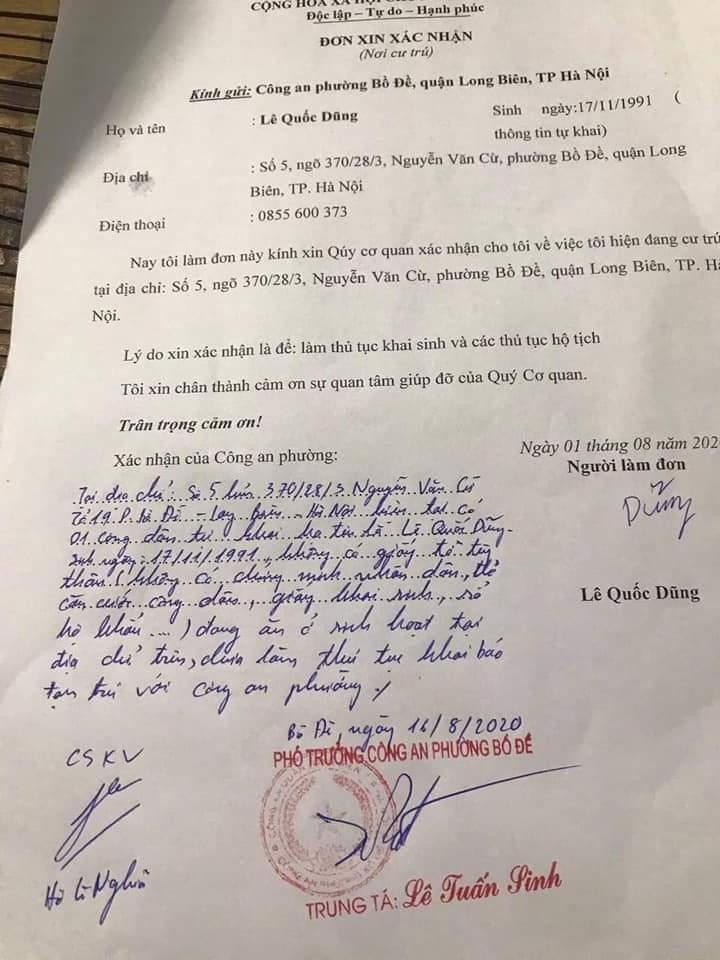 CỘNG HÒA XÃ HỘI
Độc lập – Tự do – Hạnh phúc
ĐƠN XIN XÁC NHẬN
(Nơi cư trú)
Kính gửi: Công an phường Bồ Đề, quận Long Biên, TP Hà Nội
Họ và tên : Lê Quốc Dũng Sinh ngày:17/11/1991 (
thông tin tự khai)
Địa chỉ : Số 5, ngõ 370/28/3, Nguyễn Văn Cừ, phường Bồ Đề, quận Long
Biên, TP. Hà Nội
Điện thoại : 0855 600 373
Nay tôi làm đơn này kính xin Qúy cơ quan xác nhận cho tôi về việc tôi hiện đang cư trú
tại địa chỉ: Số 5, ngõ 370/28/3, Nguyễn Văn Cừ, phường Bồ Đề, quận Long Biên, TP. Hà
Nội.
Lý do xin xác nhận là để: làm thủ tục khai sinh và các thủ tục hộ tịch
Tôi xin chân thành cảm ơn sự quan tâm giúp đỡ của Quý Cơ quan.
Trân trọng cảm ơn!
Xác nhận của Công an phường:
Ngày 01 tháng 08 năm 202
Người làm đơn
Dũng
Lê Quốc Dũng
Tại địa chỉ: Số 5 370/28/3 Nguyễn Văn Cừ
Tổ 19 P. Bồ Đề – Long Biên – Hà Nội hiện tại có
01 công dân tự khai họ tên là Lê Quốc Dũng
sinh ngày: 17/11/1991, không có giấy tờ tùy
thân (không có chứng minh nhân dân, thẻ
căn cước công dân, giấy khai sinh, sổ
hộ khẩu ...) đang ăn ở sinh hoạt tại
địa chỉ trên, chưa làm thủ tục khai báo
tạm trú với công an phường ./
Bồ Đề, ngày 16/8/2020
CSKV
PHÓ TRƯỞNG CÔNG AN PHƯỜNG BỒ ĐỀ
TRUNG TÁ: Lê Tuấn Sinh